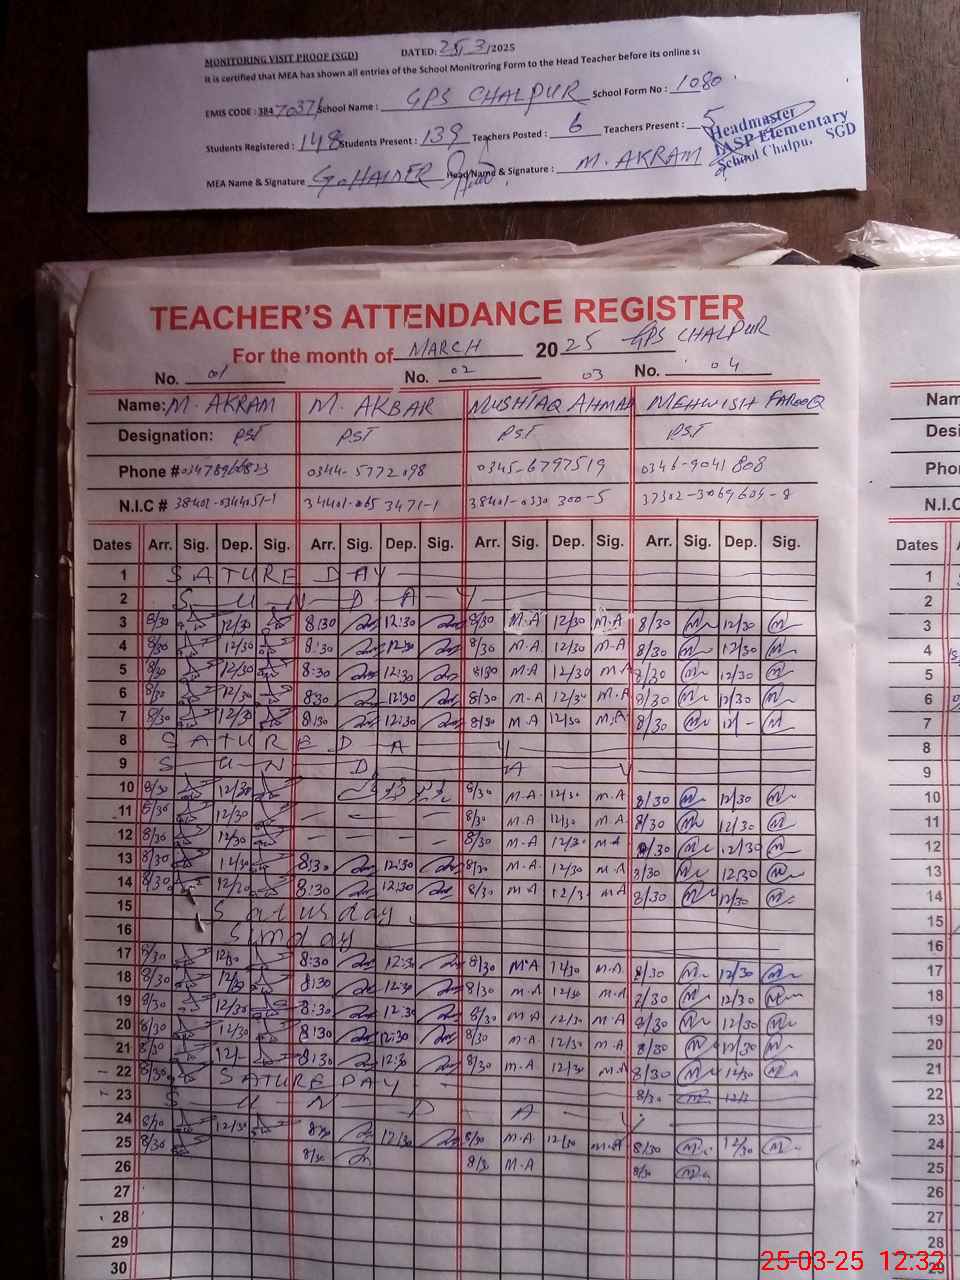 MONITORING VISIT PROOF (SGD) DATED: 25/3/2025
It is certified that MEA has shown all entries of the School Monitroring Form to the Head Teacher before its online su
EMIS CODE : 384 70376 School Name : GPS CHALPUR School Form No : 1080
Students Registered : 148 Students Present : 139 Teachers Posted : 6 Teachers Present : 5
MEA Name & Signature G. HAIDER Head Name & Signature : M. AKRAM
Headmaster
IASP Elementary
School Chalpu. SGD
TEACHER'S ATTENDANCE REGISTER
For the month of MARCH 2025 GPS CHALPUR
No. 01 No. 02 03 No. 04
Name: M. AKRAM M. AKBAR MUSHTAQ AHMAD MEHWISH FAROOQ
Designation: PST PST PST PST
Phone # 0344-5772098 0345-6797519 0346-9041808
N.I.C # 38401-0344051-1 34401-065 3471-1 38401-0330 300-5 37302-3069604-8
Dates Arr. Sig. Dep. Sig. Arr. Sig. Dep. Sig. Arr. Sig. Dep. Sig. Arr. Sig. Dep. Sig.
1 SATURE DAY
2 SUNDAY
3 8/30 12/30 8:30 12:30 8/30 M.A 12/30 M.A 8/30 12/30
4 8/30 12/30 8:30 12:30 8/30 M.A 12/30 M.A 8/30 12/30
5 8/30 12/30 8:30 12:30 8/30 M.A 12/30 M.A 8/30 12/30
6 8/30 12/30 8:30 12:30 8/30 M.A 12/30 M.A 8/30 12/30
7 8/30 12/30 8:30 12:30 8/30 M.A 12/30 M.A 8/30 12/-
8 SATURE DAY
9 SUNDAY
10 8/30 12/30 8/30 M.A 12/30 M.A 8/30 12/30
11 8/30 12/30 - - - - 8/30 M.A 12/30 M.A 8/30 12/30
12 8/30 12/30 - - - - 8/30 M.A 12/30 M.A 8/30 12/30
13 8/30 12/30 8:30 12:30 8/30 M.A 12/30 M.A 8/30 12/30
14 8/30 12/30 8:30 12:30 8/30 M.A 12/3 M.A 8/30 12/30
15 Saturday
16 Sunday
17 8/30 12/30 8:30 12:30 8/30 M.A 12/30 M.A 8/30 12/30
18 8/30 12/30 8:30 12:30 8/30 M.A 12/30 M.A 8/30 12/30
19 8/30 12/30 8:30 12:30 8/30 M.A 12/30 M.A 8/30 12/30
20 8/30 12/30 8:30 12:30 8/30 M.A 12/30 M.A 8/30 12/30
21 8/30 12/- 8:30 12:30 8/30 M.A 12/30 M.A 8/30 12/30
22 8/30 SATURE DAY 8/30 12/3
23 SUNDAY
24 8/30 12/30 8/30 12/30 8/30 M.A 12/30 M.A 8/30 12/30
25 8/30 8/30 8/30 M.A 8/30
26
27
28
29
30
Nam
Desi
Pho
N.I.C
Dates
1
2
3
4
5
6
7
8
9
10
11
12
13
14
15
16
17
18
19
20
21
22
23
24
25
26
27
28
29
25-03-25 12:32